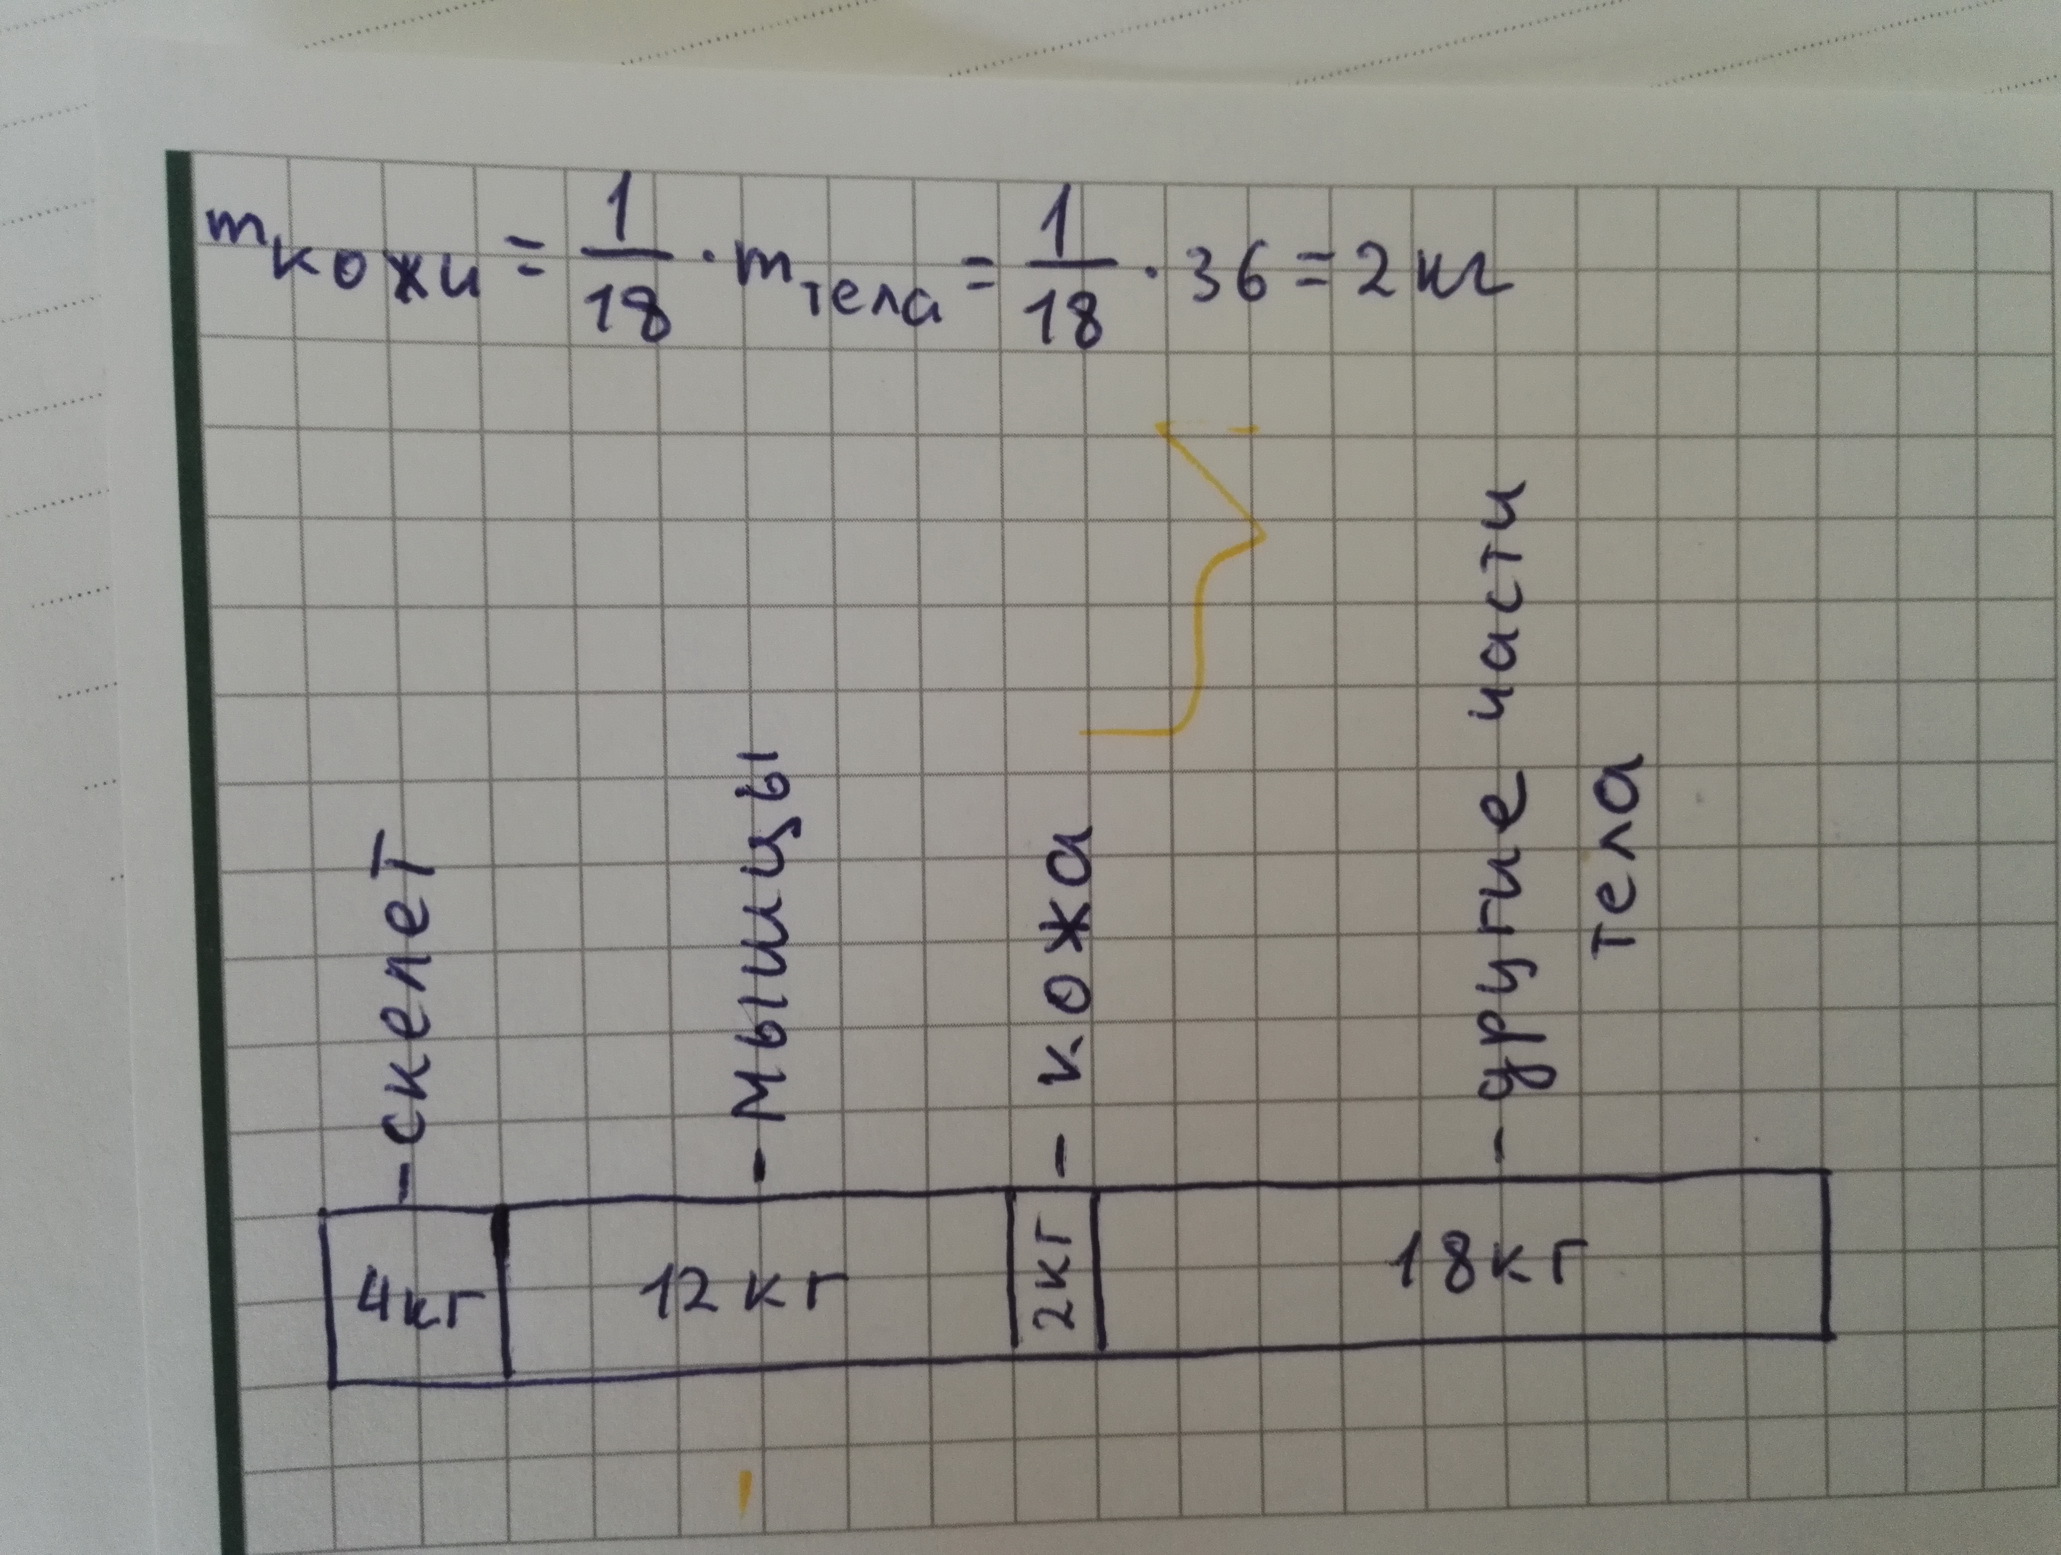 mкожи = 1/18 · mтела = 1/18 · 36 = 2 кг
- скелет
- мышцы
- кожа
- другие части
тела
4кг
12 кг
2кг
18кг